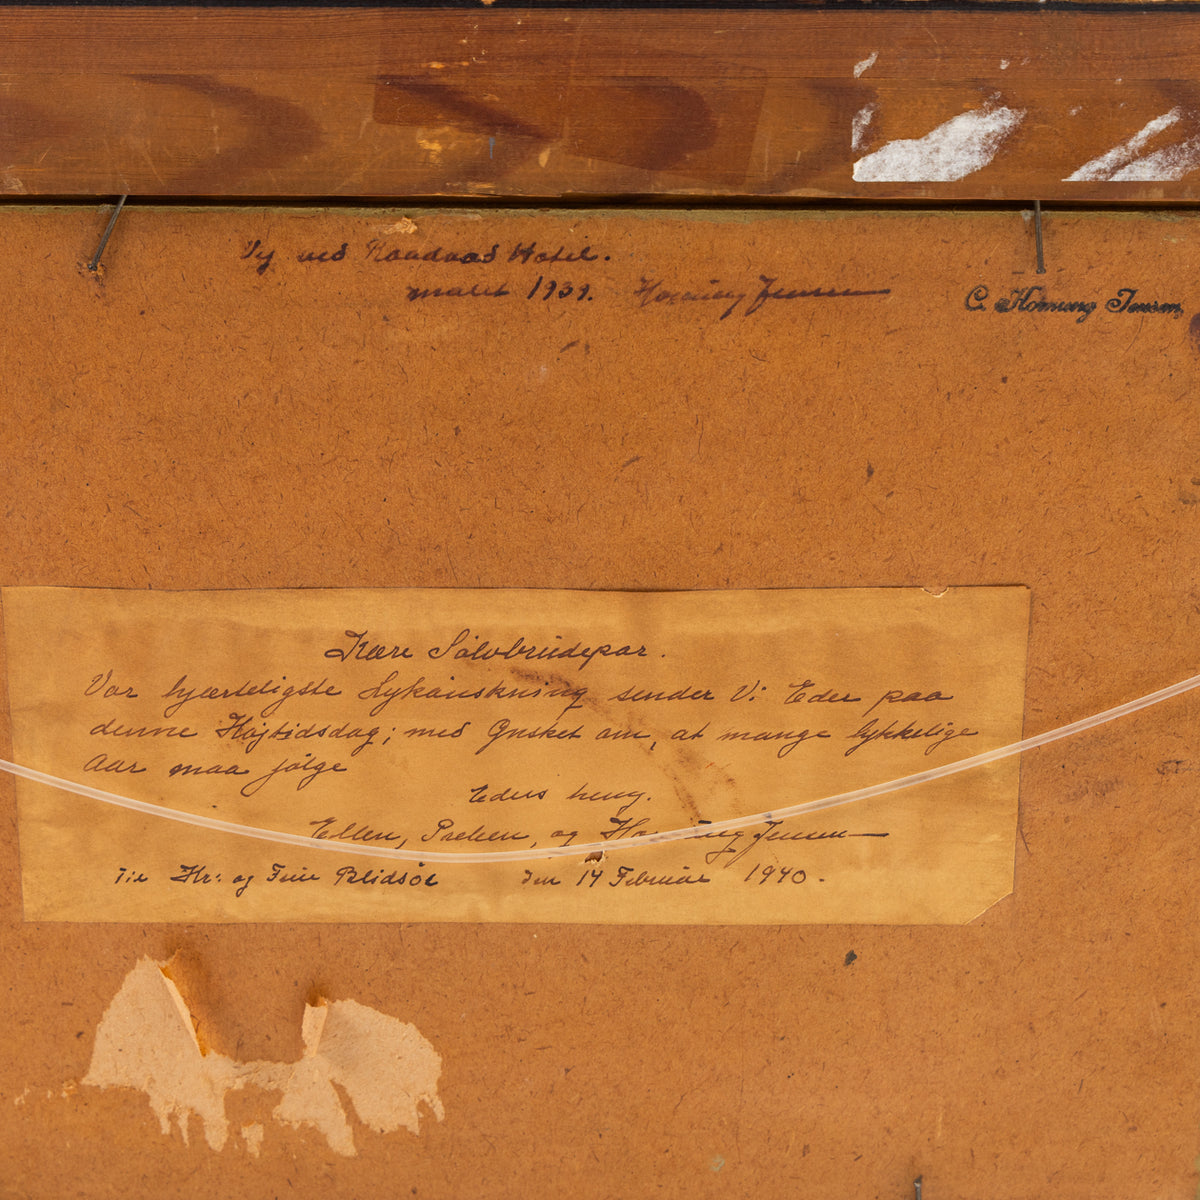 Vej ved Raadvad Hotel.
malet 1939. Hornung Jensen
C. Hornung Jensen,
Kære Sølvbrudepar.
Vor hjærteligste Lykønskning sender Vi Eder paa
denne Højtidsdag; med Ønsket om, at mange lykkelige
Aar maa følge
Eders heng.
Ellen, Preben, og Hornung Jensen
Til Hr: og Frue Blidsøe den 14 Februar 1940.